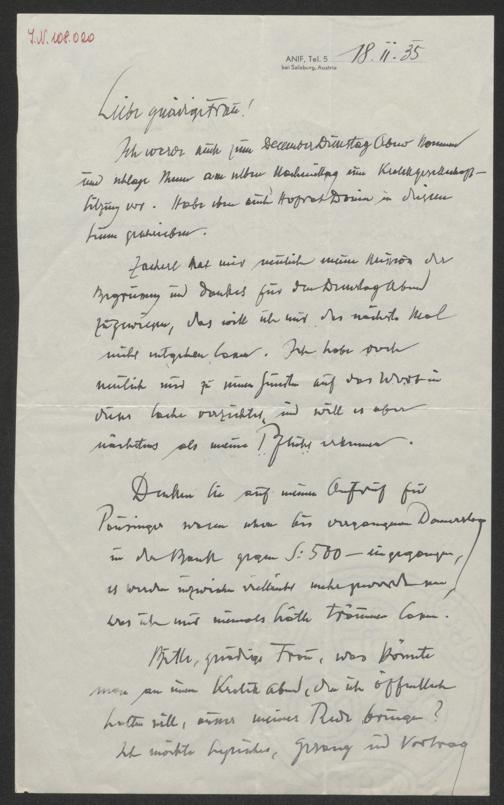 I.N. 108.020
ANIF, Tel. 5
bei Salzburg, Austria
18. II. 35
Liebe gnädige Frau!
Ich werde auch zum December Dienstag Abend kommen
und schlage Ihnen am selben Nachmittag eine Kralikgesellschaft-
Sitzung vor. Habe eben auch Hofrat in diesem
Sinne geschrieben.
Zacherl hat mir neulich meine Mission der
Begrüssung und Dankes für den Dienstag Abend
zugewiesen, das will ich mir das nächste Mal
nicht entgehen lassen. Ich habe doch
neulich nur zu Ihren Gunsten auf das Wort in
dieser Sache verzichtet, und will es aber
nächstens als meine Pflicht erkennen.
Denken Sie auf meinen Aufruf für
waren schon bis vergangenen Donnerstag
in der Bank gegen S: 500 – eingegangen,
es werden inzwischen vielleicht mehr geworden sein,
was ich mir niemals hätte träumen lassen.
Bitte, gnädige Frau, was könnte
man an einem Kralik Abend, den ich öffentlich
halten will, ausser meiner Rede bringen?
Ich möchte Lyrisches, Gesang und Vortrag